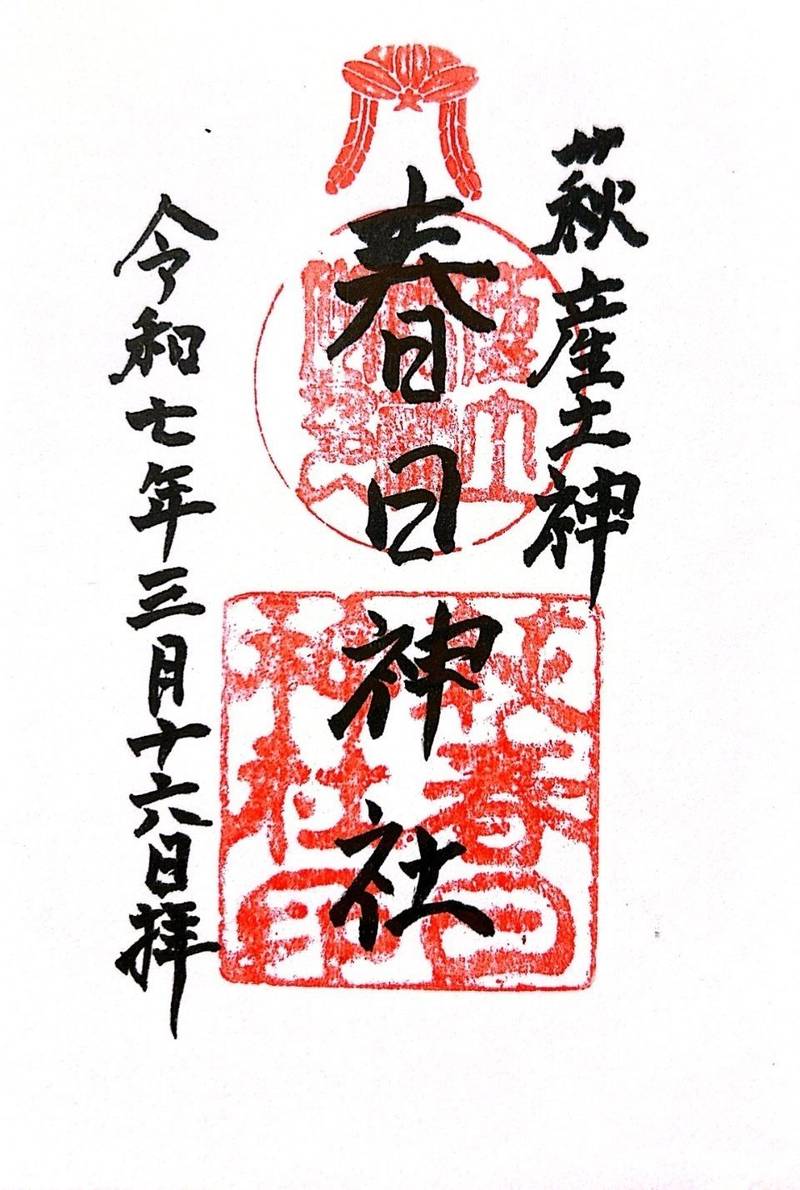 萩産土神
春日神社
萩春日
神社印
令和七年三月十六日拝